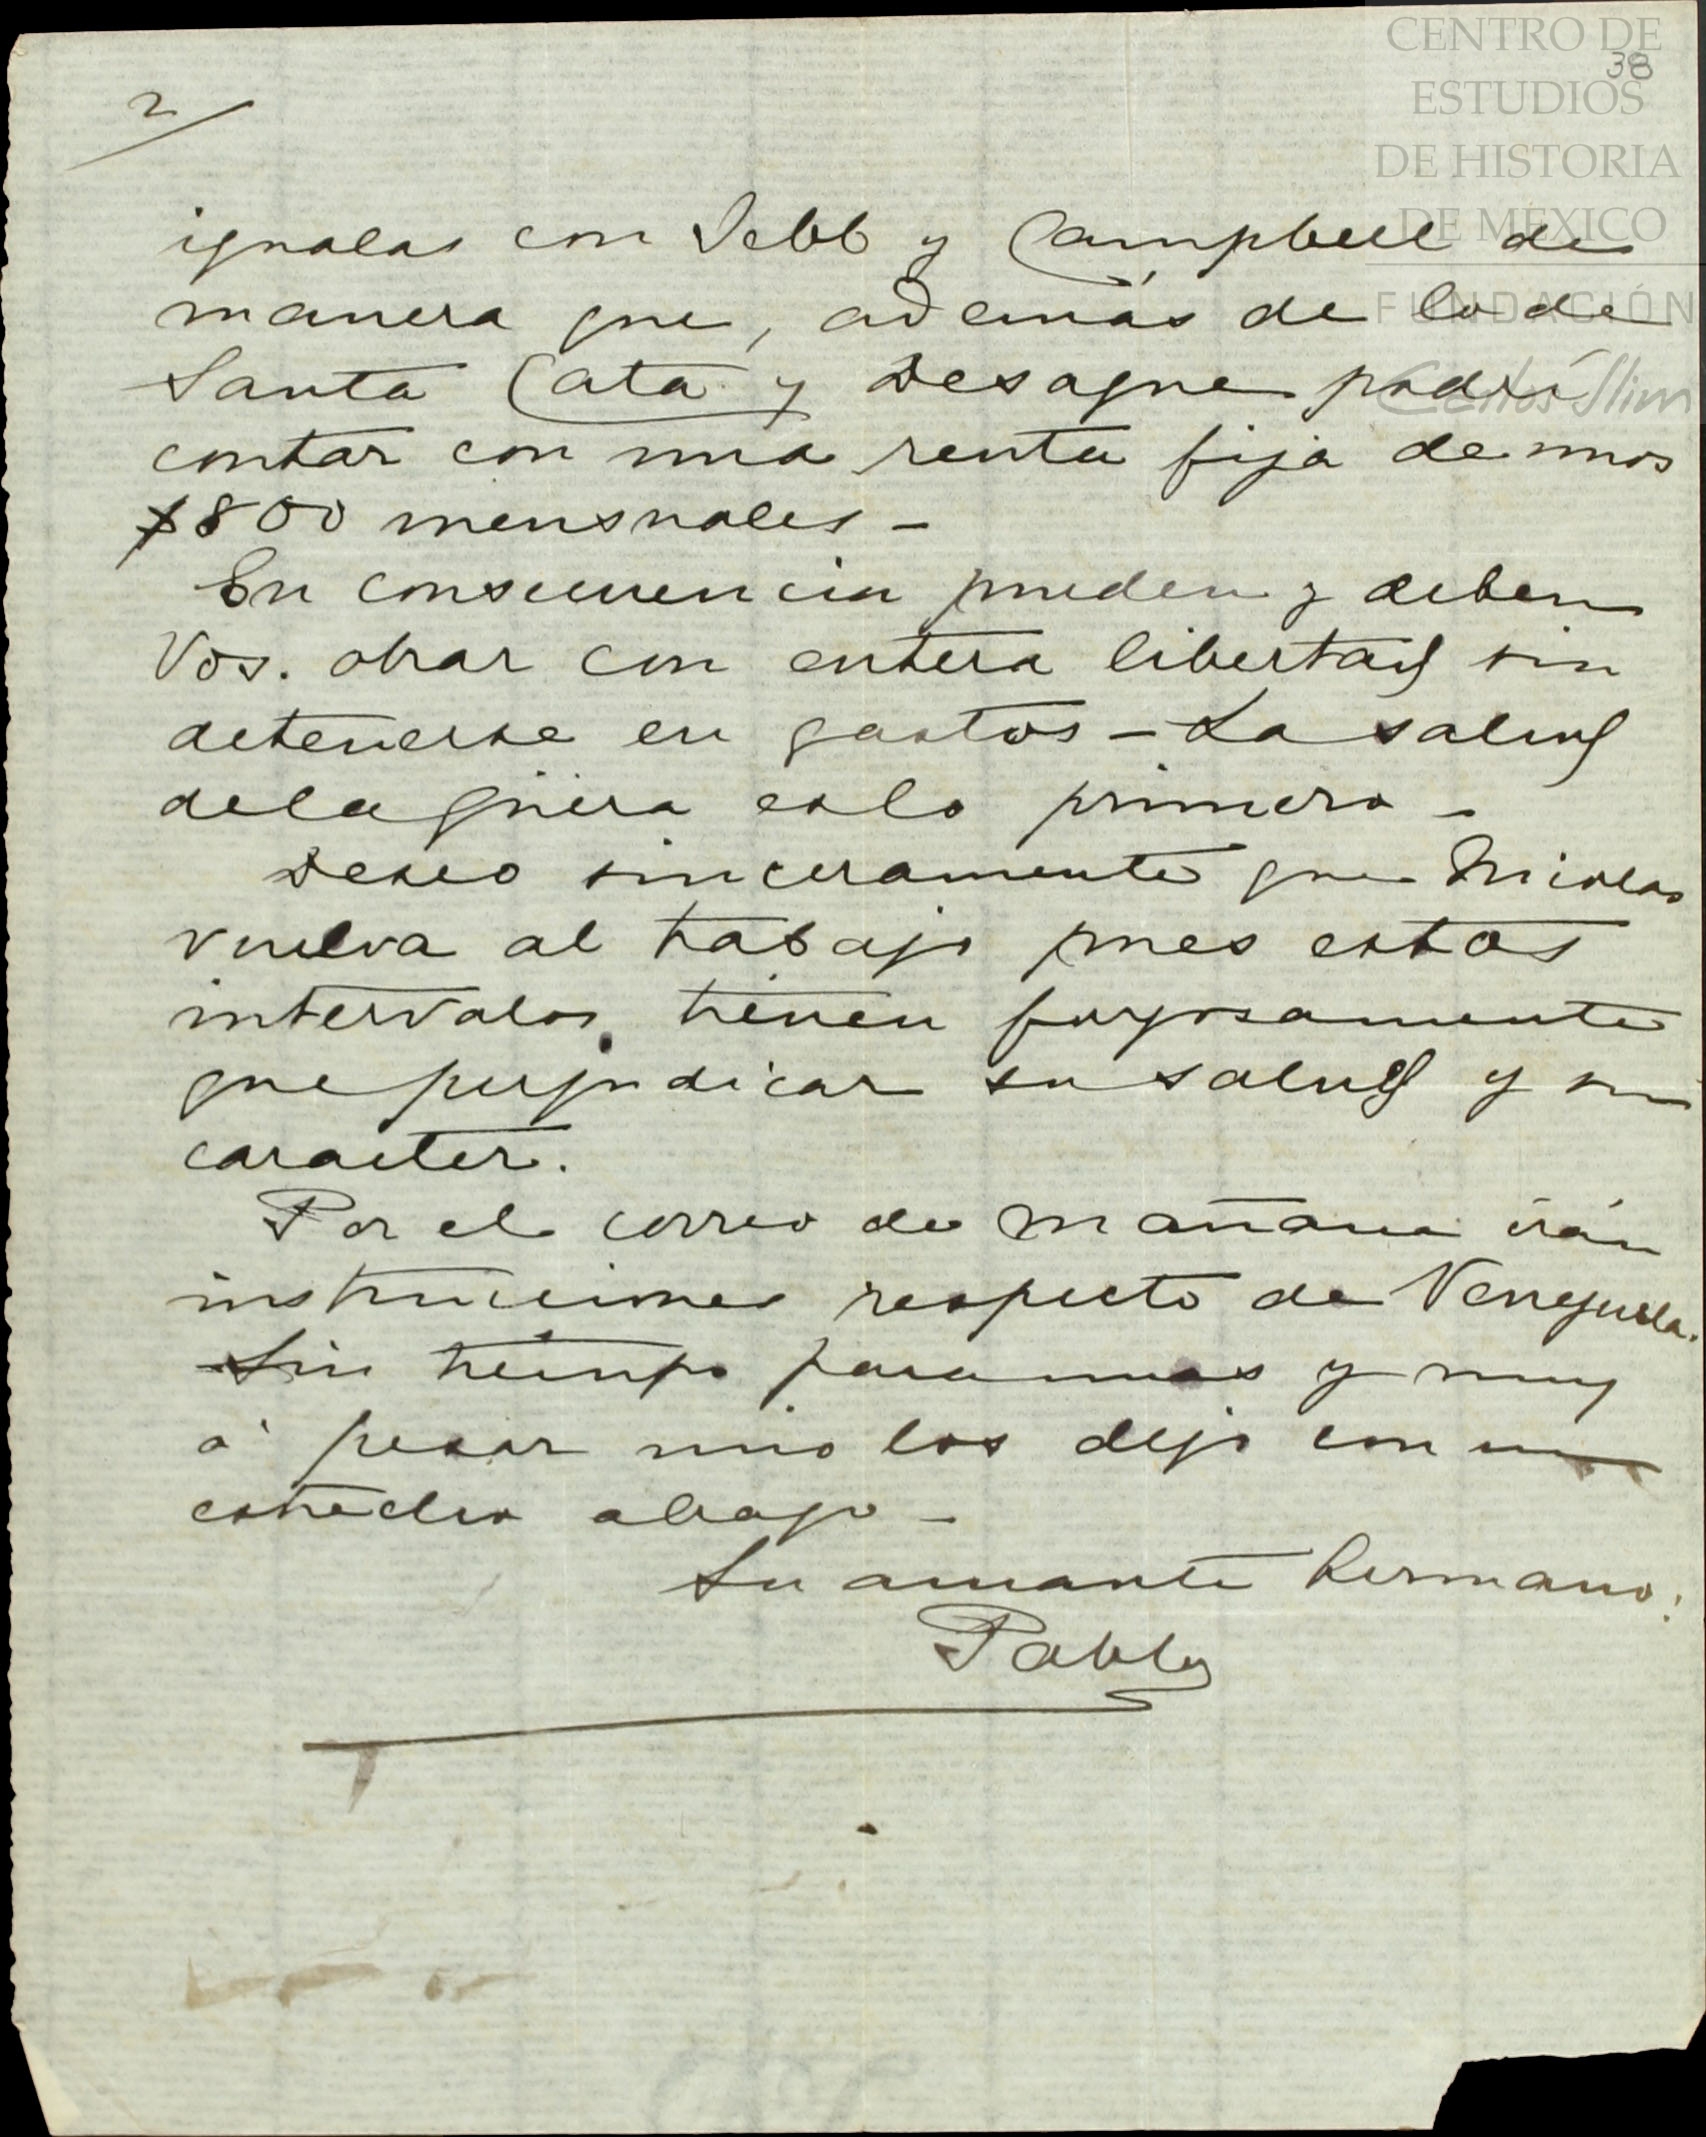 CENTRO DE
38
ESTUDIOS
DE HISTORIA
DE MÉXICO
FUNDACIÓN
Carlos Slim
2/
igualas con Webb y Campbell de
manera que, además de lo de
Santa Cata y Desague podrá
contar con una renta fija de unos
$800 mensuales –
En consecuencia pueden y deben
Vds. obrar con entera libertad sin
detenerse en gastos – La salud
de la güera es lo primero –
Deseo sinceramente que Nicolas
vuelva al trabajo pues estos
intervalos tienen forzosamente
que perjudicar su salud y su
caracter.
Por el correo de mañana irán
instrucciones respecto de Venezuela.
Sin tiempo para mas y muy
á pesar mio los dejo con un
estrecho abrazo –
Su amante hermano:
Pablo